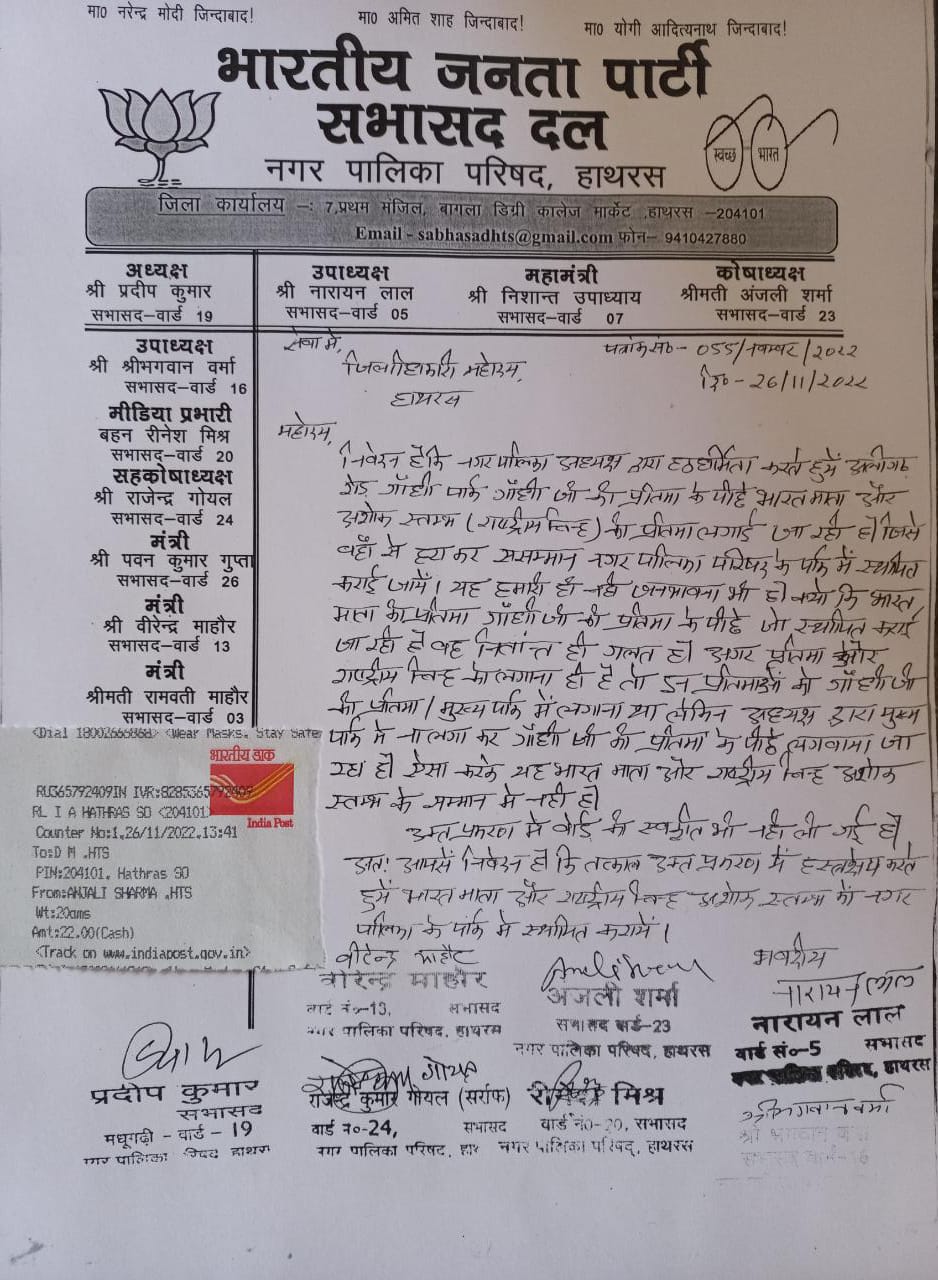 मा0 नरेन्द्र मोदी जिन्दाबाद!
मा0 अमित शाह जिन्दाबाद!
मा0 योगी आदित्यनाथ जिन्दाबाद!
भारतीय जनता पार्टी
सभासद दल
नगर पालिका परिषद, हाथरस
स्वच्छ भारत
जिला कार्यालय –: 7,प्रथम मंजिल, बागला डिग्री कालेज मार्केट ,हाथरस –204101
Email - sabhasadhts@gmail.com फोन– 9410427880
अध्यक्ष
श्री प्रदीप कुमार
सभासद–वार्ड 19
उपाध्यक्ष
श्री नारायन लाल
सभासद–वार्ड 05
महामंत्री
श्री निशान्त उपाध्याय
सभासद–वार्ड 07
कोषाध्यक्ष
श्रीमती अंजली शर्मा
सभासद–वार्ड 23
उपाध्यक्ष
श्री श्रीभगवान वर्मा
सभासद–वार्ड 16
मीडिया प्रभारी
बहन रीनेश मिश्र
सभासद–वार्ड 20
सहकोषाध्यक्ष
श्री राजेन्द्र गोयल
सभासद–वार्ड 24
मंत्री
श्री पवन कुमार गुप्ता
सभासद–वार्ड 26
मंत्री
श्री वीरेन्द्र माहौर
सभासद–वार्ड 13
मंत्री
श्रीमती रामवती माहौर
सभासद–वार्ड 03
सेवा में,
पत्रांक सं०- 055/नवम्बर/2022
जिलाधिकारी महोदय,
दि०-26/11/2022
हाथरस
महोदय,
निवेदन है कि नगर पालिका अध्यक्ष द्वारा हठधर्मिता करते हुये अलीगढ़
रोड गाँधी पार्क गाँधी जी की प्रतिमा के पीछे भारत माता और
अशोक स्तम्भ (राष्ट्रीय चिन्ह) की प्रतिमा लगाई जा रही है। जिसे
वहाँ से हटा कर ससम्मान नगर पालिका परिषद के पार्क में स्थापित
कराई जाये। यह हमारी ही नही जनभावना भी है। क्यो कि भारत
माता की प्रतिमा गाँधी जी की प्रतिमा के पीछे जो स्थापित कराई
जा रही है वह नितांत ही गलत है। अगर प्रतिमा और
राष्ट्रीय चिन्ह को लगाना ही है तो इन प्रतिमाओं को गाँधी जी
की प्रतिमा/मुख्य पार्क में लगाना था लेकिन अध्यक्ष द्वारा मुख्य
पार्क में ना लगा कर गाँधी जी की प्रतिमा के पीछे लगवाया जा
रहा है। ऐसा करके यह भारत माता और राष्ट्रीय चिन्ह अशोक
स्तम्भ के सम्मान में नही है।
उक्त प्रकरण में बोर्ड की स्वीकृति भी नही ली गई है।
अतः आपसे निवेदन है कि तत्काल उक्त प्रकरण में हस्तक्षेप करते
हुये भारत माता और राष्ट्रीय चिन्ह अशोक स्तम्भ को नगर
पालिका के पार्क में स्थापित करायें।
<Dial 18002666868> <Wear Masks, Stay Safe>
भारतीय डाक
India Post
RU365792409IN IVR:8285365792409
RL I A HATHRAS SO <204101>
Counter No:1,26/11/2022,13:41
To:D M ,HTS
PIN:204101, Hathras SO
From:ANJALI SHARMA ,HTS
Wt:20gms
Amt:22.00(Cash)
<Track on www.indiapost.gov.in>
वीरेन्द्र माहौर
वीरेन्द्र माहौर
वार्ड नं०-13, सभासद
नगर पालिका परिषद, हाथरस
अंजली शर्मा
सभासद वार्ड-23
नगर पालिका परिषद, हाथरस
भवदीय
नारायन लाल
नारायन लाल
वार्ड सं०-5 सभासद
नगर पालिका परिषद, हाथरस
प्रदीप कुमार
सभासद
मधूगढ़ी - वार्ड - 19
नगर पालिका परिषद हाथरस
गोयल
राजेन्द्र कुमार गोयल (सर्राफ)
वार्ड न०-24, सभासद
नगर पालिका परिषद, हाथ
मिश्र
वार्ड नं०-20, सभासद
नगर पालिका परिषद्, हाथरस
श्रीभगवान वर्मा
श्री भगवान वर्मा
सभासद वार्ड-16